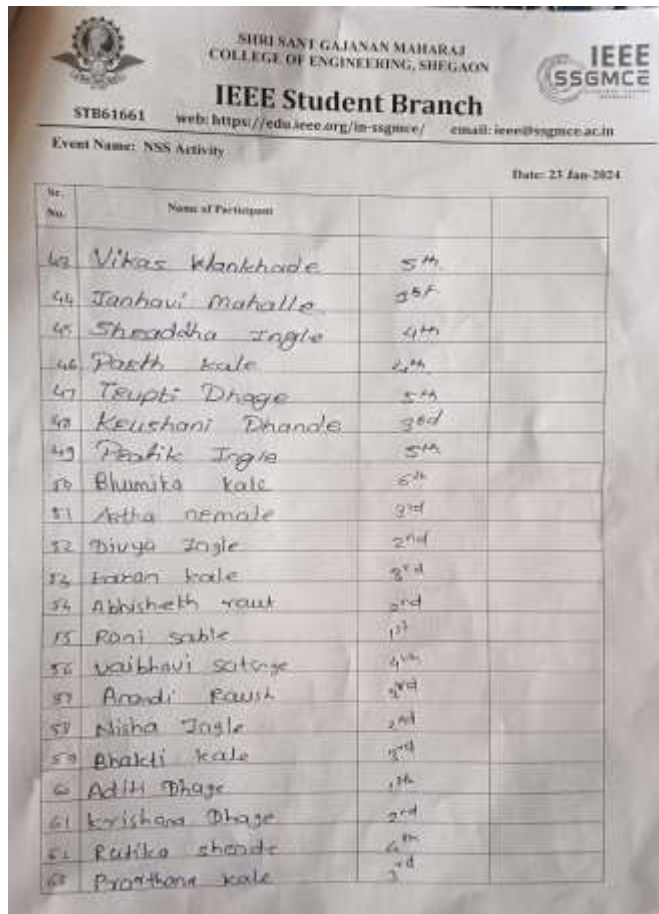 SHRI SANT GAJANAN MAHARAJ
COLLEGE OF ENGINEERING, SHEGAON
IEEE
SSGMCE
IEEE Student Branch
STB61661 web: https://edu.ieee.org/in-ssgmce/ email: ieee@ssgmce.ac.in
Event Name: NSS Activity
Date: 23 Jan-2024
Sr. No. Name of Participant
43 Vikas Wankhade 5th
44 Janhavi Mahalle
45 Shraddha Ingle 4th
46 Parth kale 4th
47 Trupti Dhage 5th
48 Krushani Dhande 3rd
49 Pratik Ingle 5th
50 Bhumika kale
51 nemale 3rd
52 Divya Ingle 2nd
53 karan kale 3rd
54 Abhisheth raut 2nd
55 Rani sable 1st
56 vaibhavi 4th
57 3rd
58 Nisha Ingle 2nd
59 Bhakti kale 3rd
60 Aditi Dhage
61 Dhage 2nd
62 shende 4th
63 Prarthana kale 3rd